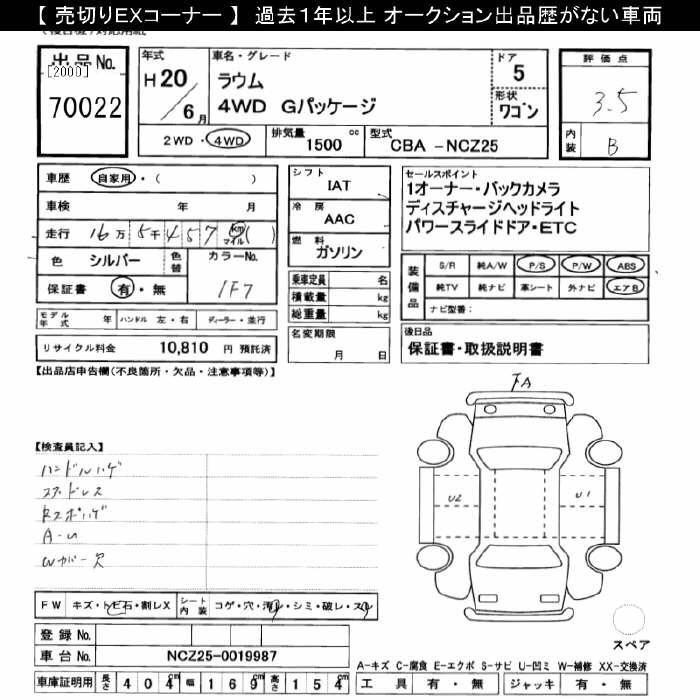 【 売切りEXコーナー 】 過去1年以上 オークション出品歴がない車両
出品No.
[2000]
70022
年式
H20
／6月
車名・グレード
ラウム
4WD Gパッケージ
ドア
5
形状
ワゴン
2WD・4WD
排気量 1500 cc
型式 CBA -NCZ25
評価点
3.5
内装 B
車歴 自家用・( )
車検 年 月
走行 16万 5千 4 5 7 km マイル ( )
色 シルバー 色替 カラーNo.
保証書 有・無 1F7
モデル年式 年 ハンドル 左・右 ディーラー・並行
リサイクル料金 10,810 円 預託済
シフト IAT
冷房 AAC
燃料 ガソリン
乗車定員 名
積載量 kg
総重量 kg
名変期限
月 日
セールスポイント
1オーナー・バックカメラ
ディスチャージヘッドライト
パワースライドドア・ETC
装備品
S/R 純A/W P/S P/W ABS
純TV 純ナビ 革シート 外ナビ エアB
ナビ型番:
後日品
保証書・取扱説明書
【出品店申告欄(不良箇所・欠品・注意事項等)】
【検査員記入】
ハンドルハゲ
スタドレス
Rスポハゲ
A-U
Wカバー欠
FA
U2
U1
スペア
FW キズ・トビ石・割レX
シート内装 コゲ・穴・汚レ・シミ・破レ・スレ
登録No.
車台No. NCZ25-0019987
車庫証明用 長さ 404cm 幅 169cm 高さ 154cm
A-キズ C-腐食 E-エクボ S-サビ U-凹ミ W-補修 XX-交換済
工具 有・無 ジャッキ 有・無